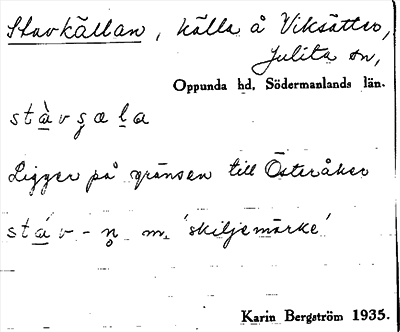 Stavkällan, källa å Viksätter,
Julita sn,
Oppunda hd. Södermanlands län.
stàvs̡æḷa
Ligger på gränsen till Österåker
stáv-n̥ m. 'skiljemärke'
Karin Bergström 1935.